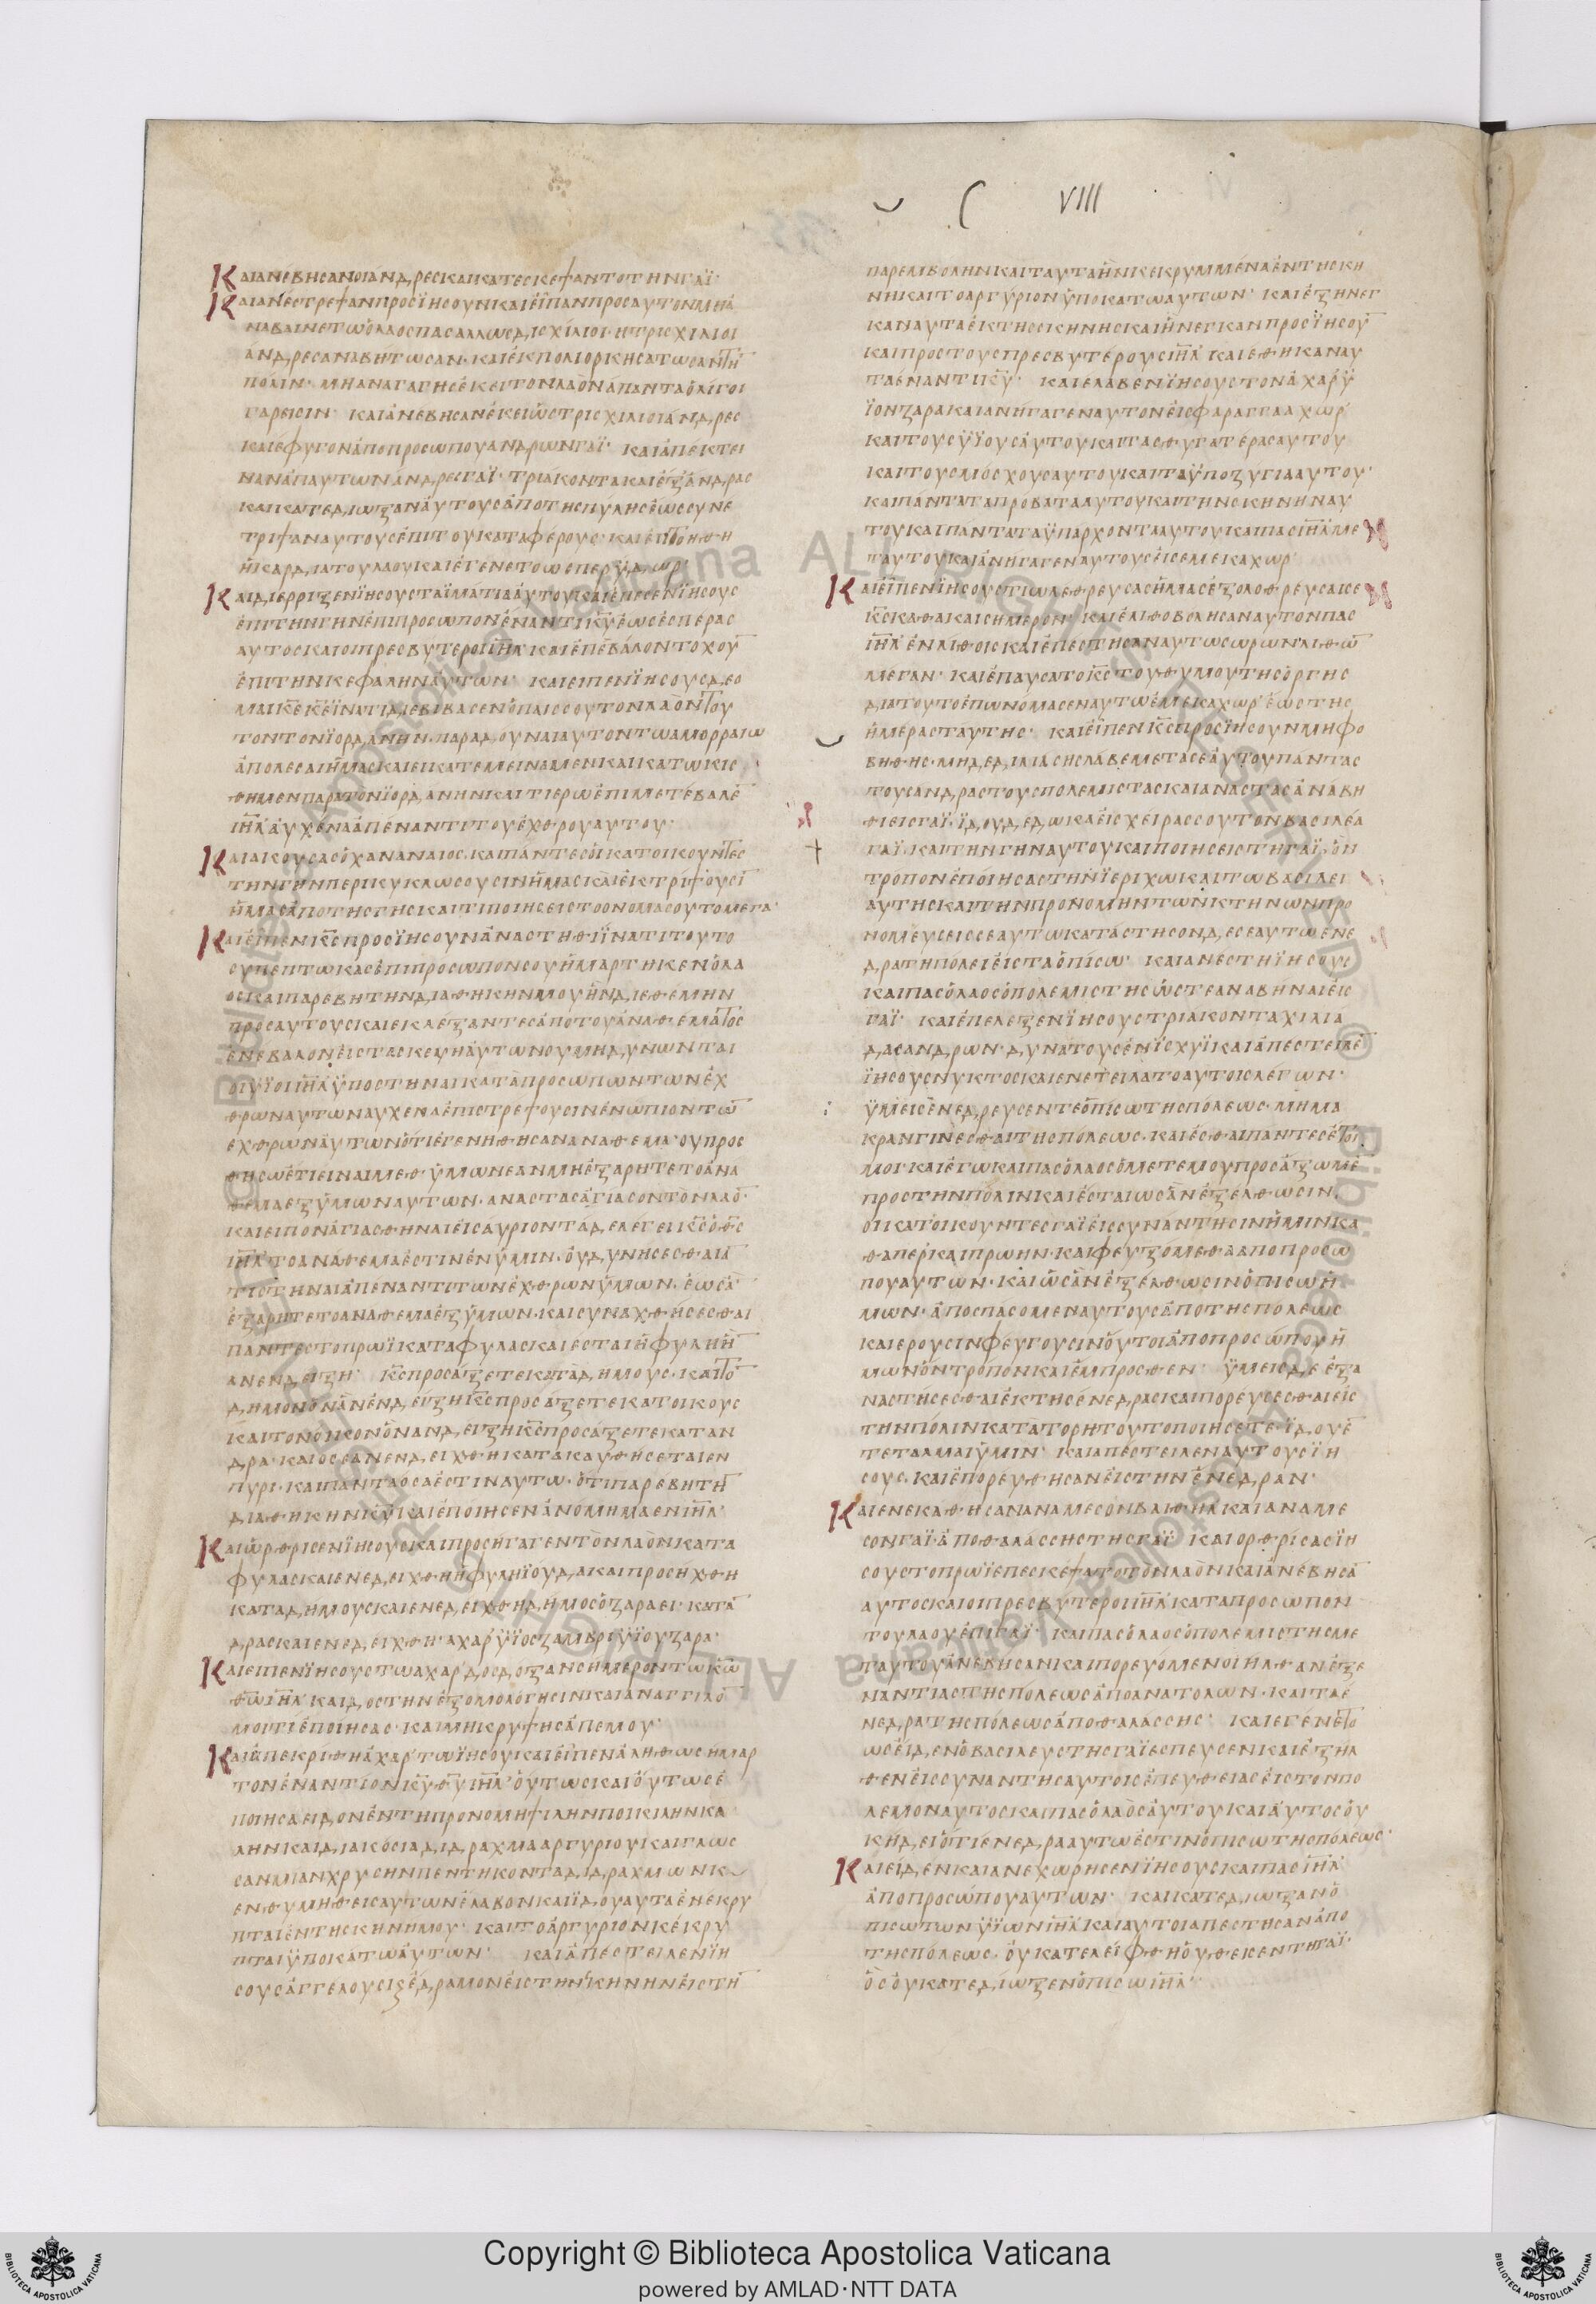 VIII
ΚΑΙΑΝΕΒΗСΑΝΟΙΑΝΔΡΕСΚΑΙΚΑΤΕСΚΕΨΑΝΤΟΤΗΝΓΑΪ·
ΚΑΙΑΝΕСΤΡΕΨΑΝΠΡΟСΪΗСΟΥΝΚΑΙΕΙΠΑΝΠΡΟСΑΥΤΟΝΜΗΑ
ΝΑΒΑΙΝΕΤΩΟΛΑΟСΠΑСΑΛΛΩСΔΙСΧΙΛΙΟΙ·ΗΤΡΙСΧΙΛΙΟΙ
ΑΝΔΡΕСΑΝΑΒΗΤΩСΑΝ·ΚΑΙΕΚΠΟΛΙΟΡΚΗСΑΤΩСΑΝΤΗ̅
ΠΟΛΙΝ·ΜΗΑΝΑΓΑΓΗСΕΚΕΙΤΟΝΛΑΟΝΑΠΑΝΤΑΟΛΙΓΟΙ
ΓΑΡΕΙСΙΝ· ΚΑΙΑΝΕΒΗСΑΝΕΚΕΙΩСΤΡΙСΧΙΛΙΟΙΑΝΔΡΕС
ΚΑΙΕΦΥΓΟΝΑΠΟΠΡΟСΩΠΟΥΑΝΔΡΩΝΓΑΪ· ΚΑΙΑΠΕΚΤΕΙ
ΝΑΝΑΠΑΥΤΩΝΑΝΔΡΕСΓΑΪ·ΤΡΙΑΚΟΝΤΑΚΑΙΕΞΑΝΔΡΑС
ΚΑΙΚΑΤΕΔΙΩΞΑΝΑΥΤΟΥСΑΠΟΤΗСΠΥΛΗСΕΩССΥΝΕ
ΤΡΙΨΑΝΑΥΤΟΥСΕΠΙΤΟΥΚΑΤΑΦΕΡΟΥС·ΚΑΙΕΠΤΟΗΘΗ
ΗΚΑΡΔΙΑΤΟΥΛΑΟΥΚΑΙΕΓΕΝΕΤΟΩСΠΕΡΫΔΩΡ·
ΚΑΙΔΙΕΡΡΙΞΕΝΪΗСΟΥСΤΑΪΜΑΤΙΑΑΥΤΟΥΚΑΙΕΠΕСΕΝΪΗСΟΥС
ΕΠΙΤΗΝΓΗΝΕΠΙΠΡΟСΩΠΟΝΕΝΑΝΤΙΚ̅Υ̅ΕΩСΕСΠΕΡΑС
ΑΥΤΟСΚΑΙΟΙΠΡΕСΒΥΤΕΡΟΙΙ̅Η̅Λ̅ΚΑΙΕΠΕΒΑΛΟΝΤΟΧΟΥ̅
ΕΠΙΤΗΝΚΕΦΑΛΗΝΑΥΤΩΝ· ΚΑΙΕΙΠΕΝΪΗСΟΥСΔΕΟ
ΜΑΙΚ̅Ε̅Κ̅Ε̅ΪΝΑΤΙΔΙΕΒΙΒΑСΕΝΟΠΑΙССΟΥΤΟΝΛΑΟΝΤΟΥ
ΤΟΝΤΟΝΪΟΡΔΑΝΗΝ·ΠΑΡΑΔΟΥΝΑΙΑΥΤΟΝΤΩΑΜΟΡΡΑΙΩ
ΑΠΟΛΕСΑΙΗΜΑСΚΑΙΕΙΚΑΤΕΜΕΙΝΑΜΕΝΚΑΙΚΑΤΩΚΙС
ΘΗΜΕΝΠΑΡΑΤΟΝΪΟΡΔΑΝΗΝΚΑΙΤΙΕΡΩΕΠΙΜΕΤΕΒΑΛΕ̅
Ι̅Η̅Λ̅ΑΥΧΕΝΑΑΠΕΝΑΝΤΙΤΟΥΕΧΘΡΟΥΑΥΤΟΥ·
ΚΑΙΑΚΟΥСΑСΟΧΑΝΑΝΑΙΟС·ΚΑΙΠΑΝΤΕСΟΙΚΑΤΟΙΚΟΥΝΤΕС
ΤΗΝΓΗΝΠΕΡΙΚΥΚΛΩСΟΥСΙΝΗΜΑСΚΑΙΕΚΤΡΙΨΟΥСΙ̅
ΗΜΑСΑΠΟΤΗСΓΗСΚΑΙΤΙΠΟΙΗСΕΙСΤΟΟΝΟΜΑСΟΥΤΟΜΕΓΑ·
ΚΑΙΕΙΠΕΝΚ̅С̅ΠΡΟСΪΗСΟΥΝΑΝΑСΤΗΘΙΪΝΑΤΙΤΟΥΤΟ
СΥΠΕΠΤΩΚΑСΕΠΙΠΡΟСΩΠΟΝСΟΥΗΜΑΡΤΗΚΕΝΟΛΑ
ΟСΚΑΙΠΑΡΕΒΗΤΗΝΔΙΑΘΗΚΗΝΜΟΥΗΝΔΙΕΘΕΜΗΝ
ΠΡΟСΑΥΤΟΥСΚΑΙΕΚΛΕΞΑΝΤΕСΑΠΟΤΟΥΑΝΑΘΕΜΑΤΟС
ΕΝΕΒΑΛΟΝΕΙСΤΑСΚΕΥΗΑΥΤΩΝΟΥΜΗΔΥΝΩΝΤΑΙ
ΟΙΥΪΟΙΙ̅Η̅Λ̅ΫΠΟСΤΗΝΑΙΚΑΤΑΠΡΟСΩΠΩΝΤΩΝΕΧ
ΘΡΩΝΑΥΤΩΝΑΥΧΕΝΑΕΠΙСΤΡΕΨΟΥСΙΝΕΝΩΠΙΟΝΤΩ̅
ΕΧΘΡΩΝΑΥΤΩΝΟΤΙΕΓΕΝΗΘΗСΑΝΑΝΑΘΕΜΑ·ΟΥΠΡΟС
ΘΗСΩΕΤΙΕΙΝΑΙΜΕΘΥΜΩΝΕΑΝΜΗΕΞΑΡΗΤΕΤΟΑΝΑ
ΘΕΜΑΕΞΥΜΩΝΑΥΤΩΝ·ΑΝΑСΤΑСΑΓΙΑСΟΝΤΟΝΛΑΟ̅·
ΚΑΙΕΙΠΟΝΑΓΙΑСΘΗΝΑΙΕΙСΑΥΡΙΟΝΤΑΔΕΛΕΓΕΙΚ̅С̅ΟΘ̅С̅
Ι̅Η̅Λ̅ΤΟΑΝΑΘΕΜΑΕСΤΙΝΕΝΥΜΙΝ·ΟΥΔΥΝΗСΕСΘΑΙΑ̅
ΤΙСΤΗΝΑΙΑΠΕΝΑΝΤΙΤΩΝΕΧΘΡΩΝΥΜΩΝ·ΕΩСΑ̅
ΕΞΑΡΗΤΕΤΟΑΝΑΘΕΜΑΕΞΥΜΩΝ·ΚΑΙСΥΝΑΧΘΗСΕСΘΑΙ
ΠΑΝΤΕСΤΟΠΡΩΪΚΑΤΑΦΥΛΑСΚΑΙΕСΤΑΙΗΦΥΛΗΗ̅
ΑΝΕΝΔΕΙΞΗ· Κ̅С̅ΠΡΟСΑΞΕΤΕΚΑΤΑΔΗΜΟΥС·ΚΑΙΤΟ̅
ΔΗΜΟΝΟΝΑΝΕΝΔΕΙΞΗΚ̅С̅ΠΡΟСΑΞΕΤΕΚΑΤΟΙΚΟΥС
ΚΑΙΤΟΝΟΙΚΟΝΟΝΑΝΔΕΙΞΗΚ̅С̅ΠΡΟСΑΞΕΤΕΚΑΤΑΝ
ΔΡΑ·ΚΑΙΟСΕΑΝΕΝΔΕΙΧΘΗΚΑΤΑΚΑΥΘΗСΕΤΑΙΕΝ
ΠΥΡΙ·ΚΑΙΠΑΝΤΑΟСΑΕСΤΙΝΑΥΤΩ·ΟΤΙΠΑΡΕΒΗΤΗ̅
ΔΙΑΘΗΚΗΝΚ̅Υ̅ΚΑΙΕΠΟΙΗСΕΝΑΝΟΜΗΜΑΕΝΙ̅Η̅Λ̅·
ΚΑΙΩΡΘΡΙСΕΝΪΗСΟΥСΚΑΙΠΡΟСΗΓΑΓΕΝΤΟΝΛΑΟΝΚΑΤΑ
ΦΥΛΑСΚΑΙΕΝΕΔΕΙΧΘΗΗΦΥΛΗΪΟΥΔΑΚΑΙΠΡΟСΗΧΘΗ
ΚΑΤΑΔΗΜΟΥСΚΑΙΕΝΕΔΕΙΧΘΗΔΗΜΟСΟΖΑΡΑΕΙ·ΚΑΤΑ̅
ΔΡΑСΚΑΙΕΝΕΔΕΙΧΘΗ·ΑΧΑΡΫΪΟСΖΑΜΒΡΙΫΪΟΥΖΑΡΑ·
ΚΑΙΕΙΠΕΝΪΗСΟΥСΤΩΑΧΑΡΔΟСΔΟΞΑΝСΗΜΕΡΟΝΤΩΚ̅Ω̅
Θ̅Ω̅Ι̅Η̅Λ̅ΚΑΙΔΟСΤΗΝΕΞΟΜΟΛΟΓΗСΙΝΚΑΙΑΝΑΓΓΙΛΟ̅
ΜΟΙΤΙΕΠΟΙΗСΑС·ΚΑΙΜΗΚΡΥΨΗСΑΠΕΜΟΥ·
ΚΑΙΑΠΕΚΡΙΘΗΑΧΑΡΤΩΪΗСΟΥΚΑΙΕΙΠΕΝΑΛΗΘΩСΗΜΑΡ
ΤΟΝΕΝΑΝΤΙΟΝΚ̅Υ̅Θ̅Υ̅Ι̅Η̅Λ̅ΟΥΤΩСΚΑΙΟΥΤΩСΕ
ΠΟΙΗСΑΕΙΔΟΝΕΝΤΗΠΡΟΝΟΜΗΨΙΛΗΝΠΟΙΚΙΛΗΝΚΑ
ΛΗΝΚΑΙΔΙΑΚΟСΙΑΔΙΔΡΑΧΜΑΑΡΓΥΡΙΟΥΚΑΙΓΛΩС
СΑΝΜΙΑΝΧΡΥСΗΝΠΕΝΤΗΚΟΝΤΑΔΙΔΡΑΧΜΩΝΚ
ΕΝΘΥΜΗΘΕΙСΑΥΤΩΝΕΛΑΒΟΝΚΑΙΪΔΟΥΑΥΤΑΕΝΕΚΡΥ
ΠΤΑΙΕΝΤΗСΚΗΝΗΜΟΥ· ΚΑΙΤΟΑΡΓΥΡΙΟΝΚΕΚΡΥ
ΠΤΑΙΫΠΟΚΑΤΩΑΥΤΩΝ· ΚΑΙΑΠΕСΤΕΙΛΕΝΪΗ
СΟΥСΑΓΓΕΛΟΥСΙΞΕΔΡΑΜΟΝΕΙСΤΗΝСΚΗΝΗΝΕΙСΤΗ̅
ΠΑΡΕΜΒΟΛΗΝΚΑΙΤΑΥΤΑΗΝΚΕΚΡΥΜΜΕΝΑΕΝΤΗСΚΗ
ΝΗΚΑΙΤΟΑΡΓΥΡΙΟΝΫΠΟΚΑΤΩΑΥΤΩΝ· ΚΑΙΕΞΗΝΕΓ
ΚΑΝΑΥΤΑΕΚΤΗССΚΗΝΗСΚΑΙΗΝΕΓΚΑΝΠΡΟСΪΗСΟΥ̅
ΚΑΙΠΡΟСΤΟΥСΠΡΕСΒΥΤΕΡΟΥСΙ̅Η̅Λ̅ΚΑΙΕΘΗΚΑΝΑΥ
ΤΑΕΝΑΝΤΙΚ̅Υ̅· ΚΑΙΕΛΑΒΕΝΪΗСΟΥСΤΟΝΑΧΑΡΫ
ΪΟΝΖΑΡΑΚΑΙΑΝΗΓΑΓΕΝΑΥΤΟΝΕΙСΦΑΡΑΓΓΑΑΧΩΡ
ΚΑΙΤΟΥСΫΪΟΥСΑΥΤΟΥΚΑΙΤΑСΘΥΓΑΤΕΡΑСΑΥΤΟΥ
ΚΑΙΤΟΥСΜΟСΧΟΥСΑΥΤΟΥΚΑΙΤΑΫΠΟΖΥΓΙΑΑΥΤΟΥ·
ΚΑΙΠΑΝΤΑΤΑΠΡΟΒΑΤΑΑΥΤΟΥΚΑΙΤΗΝСΚΗΝΗΝΑΥ
ΤΟΥΚΑΙΠΑΝΤΑΤΑΫΠΑΡΧΟΝΤΑΑΥΤΟΥΚΑΙΠΑСΙ̅Η̅Λ̅ΜΕ
ΤΑΥΤΟΥΚΑΙΑΝΗΓΑΓΕΝΑΥΤΟΥСΕΙСΕΜΕΚΑΧΩΡ·
ΚΑΙΕΙΠΕΝΪΗСΟΥСΤΙΩΛΕΘΡΕΥСΑСΗΜΑСΕΞΟΛΟΘΡΕΥСΑΙСΕ
Κ̅С̅ΚΑΘΑΚΑΙСΗΜΕΡΟΝ· ΚΑΙΕΛΙΘΟΒΟΛΗСΑΝΑΥΤΟΝΠΑС
Ι̅Η̅Λ̅ΕΝΛΙΘΟΙСΚΑΙΕΠΕСΤΗСΑΝΑΥΤΩСΩΡΩΝΛΙΘΩ̅
ΜΕΓΑΝ· ΚΑΙΕΠΑΥСΑΤΟΚ̅С̅ΤΟΥΘΥΜΟΥΤΗСΟΡΓΗС
ΔΙΑΤΟΥΤΟΕΠΩΝΟΜΑСΕΝΑΥΤΩΕΜΕΚΑΧΩΡ·ΕΩСΤΗС
ΗΜΕΡΑСΤΑΥΤΗС· ΚΑΙΕΙΠΕΝΚ̅С̅ΠΡΟСΪΗСΟΥΝΜΗΦΟ
ΒΗΘΗС·ΜΗΔΕΔΙΛΙΑСΗСΛΑΒΕΜΕΤΑСΕΑΥΤΟΥΠΑΝΤΑС
ΤΟΥСΑΝΔΡΑСΤΟΥСΠΟΛΕΜΙСΤΑСΚΑΙΑΝΑСΤΑСΑΝΑΒΗ
ΘΙΕΙСΓΑΪ·ΪΔΟΥΔΕΔΩΚΑΕΙСΧΕΙΡΑССΟΥΤΟΝΒΑСΙΛΕΑ
ΓΑΪ·ΚΑΙΤΗΝΓΗΝΑΥΤΟΥΚΑΙΠΟΙΗСΕΙСΤΗΓΑΪ·ΟΝ
ΤΡΟΠΟΝΕΠΟΙΗСΑСΤΗΝΪΕΡΙΧΩΚΑΙΤΩΒΑСΙΛΕΙ
ΑΥΤΗСΚΑΙΤΗΝΠΡΟΝΟΜΗΝΤΩΝΚΤΗΝΩΝΠΡΟ
ΝΟΜΕΥСΕΙССΕΑΥΤΩΚΑΤΑСΤΗСΟΝΔΕСΕΑΥΤΩΕΝΕ
ΔΡΑΤΗΠΟΛΕΙΕΙСΤΑΟΠΙСΩ· ΚΑΙΑΝΕСΤΗΪΗСΟΥС
ΚΑΙΠΑСΟΛΑΟСΟΠΟΛΕΜΙСΤΗСΩСΤΕΑΝΑΒΗΝΑΙΕΙС
ΓΑΪ· ΚΑΙΕΠΕΛΕΞΕΝΪΗСΟΥСΤΡΙΑΚΟΝΤΑΧΙΛΙΑ
ΔΑСΑΝΔΡΩΝ·ΔΥΝΑΤΟΥСΕΝΪСΧΥΪΚΑΙΑΠΕСΤΕΙΛΕ̅
ΪΗСΟΥСΝΥΚΤΟСΚΑΙΕΝΕΤΕΙΛΑΤΟΑΥΤΟΙСΛΕΓΩΝ·
ΫΜΕΙСΕΝΕΔΡΕΥСΕΝΤΕΟΠΙСΩΤΗСΠΟΛΕΩС·ΜΗΜΑ
ΚΡΑΝΓΙΝΕСΘΑΙΤΗСΠΟΛΕΩС·ΚΑΙΕСΘΑΙΠΑΝΤΕСΕΤΟΙ
ΜΟΙΚΑΙΕΓΩΚΑΙΠΑСΟΛΑΟСΟΜΕΤΕΜΟΥΠΡΟСΑΞΩΜΕ̅
ΠΡΟСΤΗΝΠΟΛΙΝΚΑΙΕСΤΑΙΩСΑΝΕΞΕΛΘΩСΙΝ
ΟΙΚΑΤΟΙΚΟΥΝΤΕСΓΑΪΕΙССΥΝΑΝΤΗСΙΝΗΜΙΝΚΑ
ΘΑΠΕΡΚΑΙΠΡΩΗΝ·ΚΑΙΦΕΥΞΟΜΕΘΑΑΠΟΠΡΟСΩ
ΠΟΥΑΥΤΩΝ·ΚΑΙΩСΑΝΕΞΕΛΘΩСΙΝΟΠΙСΩΗ
ΜΩΝ·ΑΠΟСΠΑСΟΜΕΝΑΥΤΟΥСΑΠΟΤΗСΠΟΛΕΩС
ΚΑΙΕΡΟΥСΙΝΦΕΥΓΟΥСΙΝΟΥΤΟΙΑΠΟΠΡΟСΩΠΟΥΗ
ΜΩΝΟΝΤΡΟΠΟΝΚΑΙΕΜΠΡΟСΘΕΝ· ΫΜΕΙСΔΕΕΞΑ
ΝΑСΤΗСΕСΘΑΙΕΚΤΗСΕΝΕΔΡΑСΚΑΙΠΟΡΕΥСΕСΘΑΙΕΙС
ΤΗΝΠΟΛΙΝΚΑΤΑΤΟΡΗΤΟΥΤΟΠΟΙΗСΕΤΕ·ΪΔΟΥΕ̅
ΤΕΤΑΛΜΑΙΫΜΙΝ· ΚΑΙΑΠΕСΤΕΙΛΕΝΑΥΤΟΥСΪΗ
СΟΥС·ΚΑΙΕΠΟΡΕΥΘΗСΑΝΕΙСΤΗΝΕΝΕΔΡΑΝ·
ΚΑΙΕΝΕΚΑΘΗСΑΝΑΝΑΜΕСΟΝΒΑΙΘΗΛΚΑΙΑΝΑΜΕ
СΟΝΓΑΪ·ΑΠΟΘΑΛΑССΗСΤΗСΓΑΪ· ΚΑΙΟΡΘΡΙСΑСΪΗ
СΟΥСΤΟΠΡΩΪΕΠΕСΚΕΨΑΤΟΤΟΝΛΑΟΝΚΑΙΑΝΕΒΗСΑ̅
ΑΥΤΟСΚΑΙΟΙΠΡΕСΒΥΤΕΡΟΙΙ̅Η̅Λ̅ΚΑΤΑΠΡΟСΩΠΟΝ
ΤΟΥΛΑΟΥΕΠΙΓΑΪ· ΚΑΙΠΑСΟΛΑΟСΟΠΟΛΕΜΙСΤΗСΜΕ
ΤΑΥΤΟΥΑΝΕΒΗСΑΝΚΑΙΠΟΡΕΥΟΜΕΝΟΙΗΛΘΑΝΕΞΕ
ΝΑΝΤΙΑСΤΗСΠΟΛΕΩСΑΠΟΑΝΑΤΟΛΩΝ·ΚΑΙΤΑΕ
ΝΕΔΡΑΤΗСΠΟΛΕΩСΑΠΟΘΑΛΑССΗС· ΚΑΙΕΓΕΝΕΤΟ
ΩСΕΙΔΕΝΟΒΑСΙΛΕΥСΤΗСΓΑΪΕСΠΕΥСΕΝΚΑΙΕΞΗΛ
ΘΕΝΕΙССΥΝΑΝΤΗСΑΥΤΟΙСΕΠΕΥΘΕΙΑСΕΙСΤΟΝΠΟ
ΛΕΜΟΝΑΥΤΟСΚΑΙΠΑСΟΛΑΟСΑΥΤΟΥΚΑΙΑΥΤΟСΟΥ
ΚΗΔΕΙΟΤΙΕΝΕΔΡΑΑΥΤΩΕСΤΙΝΟΠΙСΩΤΗСΠΟΛΕΩС·
ΚΑΙΕΙΔΕΝΚΑΙΑΝΕΧΩΡΗСΕΝΪΗСΟΥСΚΑΙΠΑСΙ̅Η̅Λ̅
ΑΠΟΠΡΟСΩΠΟΥΑΥΤΩΝ· ΚΑΙΚΑΤΕΔΙΩΞΑΝΟ
ΠΙСΩΤΩΝΫΪΩΝΙ̅Η̅Λ̅ΚΑΙΑΥΤΟΙΑΠΕСΤΗСΑΝΑΠΟ
ΤΗСΠΟΛΕΩС·ΟΥΚΑΤΕΛΕΙΦΘΗΟΥΘΕΙСΕΝΤΗΓΑΪ·
ΟСΟΥΚΑΤΕΔΙΩΞΕΝΟΠΙСΩΙ̅Η̅Λ̅·
Copyright © Biblioteca Apostolica Vaticana
powered by AMLAD·NTT DATA